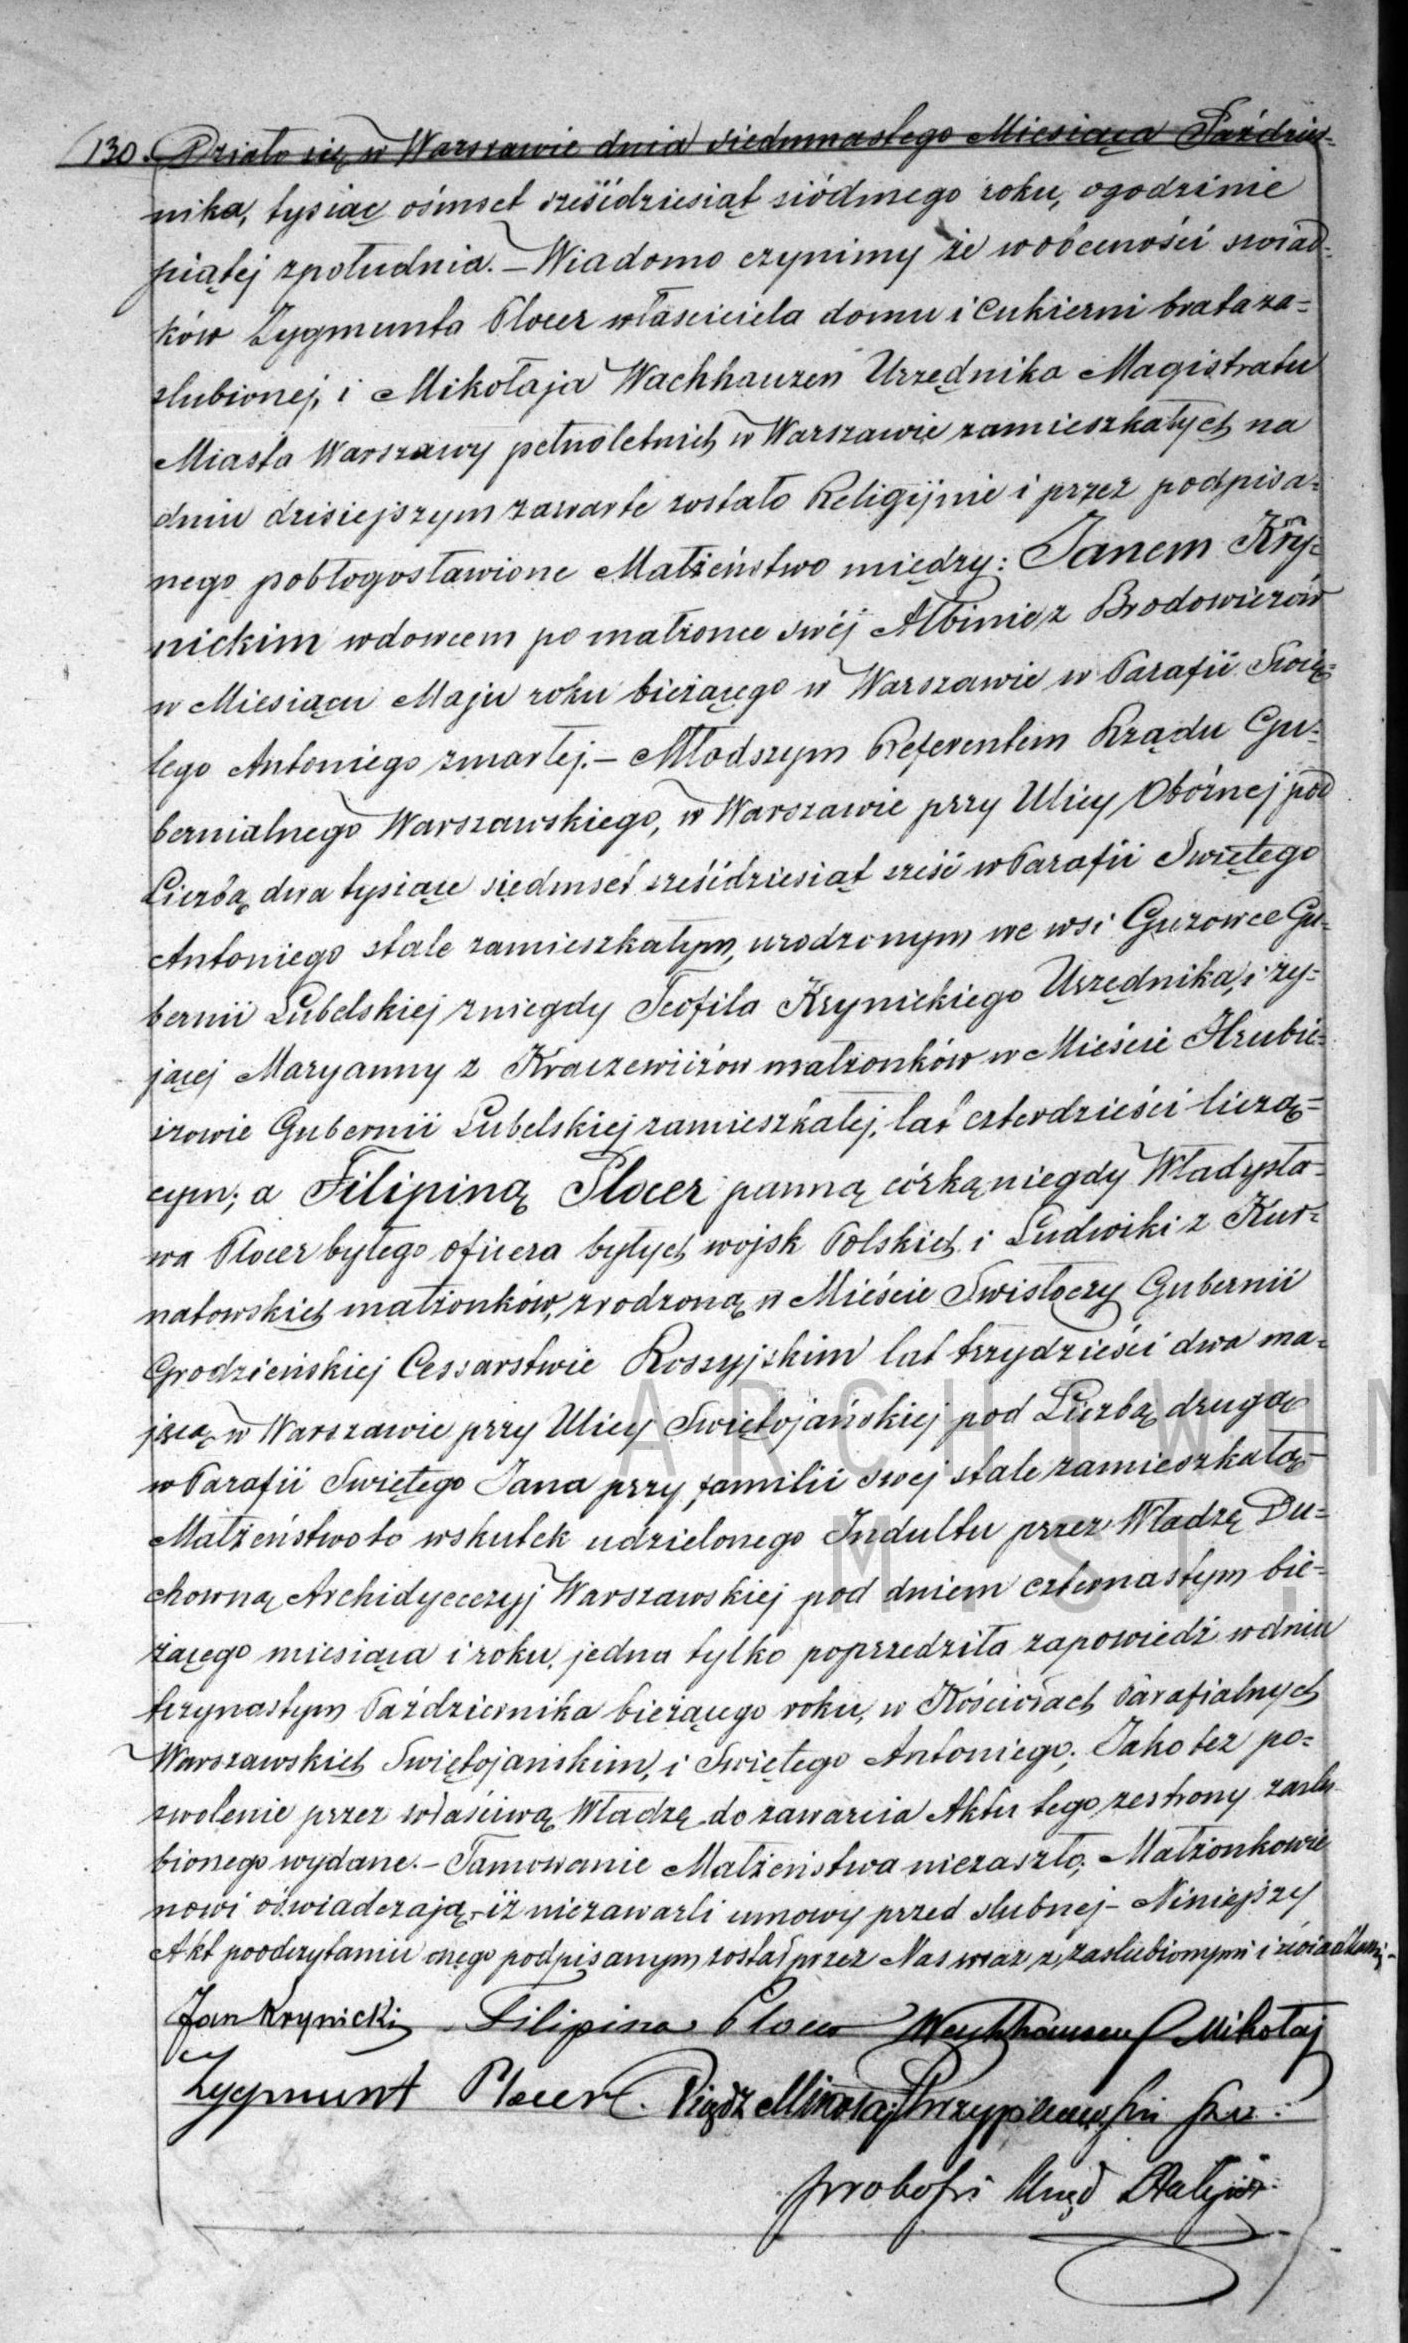 130. Działo się w Warszawie dnia siedmnastego Miesiąca Paździer=
nika, tysiąc ośmset sześćdziesiąt siódmego roku, ogodzinie
piątej zpołudnia. – Wiadomo czynimy że wobecności świad=
ków Zygmunta Plocer właściciela domu i Cukierni brata za=
ślubionej, i Mikołaja Wachhauzen Urzędnika Magistratu
Miasta Warszawy pełnoletnich w Warszawie zamieszkałych na
dniu dzisiejszym zawarte zostało Religijnie i przez podpisa=
nego pobłogosławione Małżeństwo między: Janem Kry=
nickim wdowcem po małżonce swéj Albinie z Brodowiczów
w Miesiącu Maju roku bieżącego w Warszawie w Parafii Swię=
tego Antoniego zmarłej. – Młodszym Referentem Rządu Gu=
bernialnego Warszawskiego, w Warszawie przy Ulicy Oboźnej pod
Liczbą dwa tysiące siedmset sześćdziesiąt sześć w Parafii Swiętego
Antoniego stale zamieszkałym, urodzonym we wsi Guzowce Gu=
bernii Lubelskiej z niegdy Teofila Krynickiego Urzędnika, i ży=
jącej Maryanny z Kraczewiczów małżonków w Mieście Hrubie=
szowie Gubernii Lubelskiej zamieszkałej, lat czterdzieści liczą=
cym; a Filipiną Plocer panną córką niegdy Władysła=
wa Plocer byłego oficera byłych wojsk Polskich i Ludwiki z Kur=
natowskich małżonków, zrodzoną w Mieście Swisłoczy Gubernii
Grodzieńskiej Cessarstwie Rossyjskim lat trzydzieści dwa ma=
jącą w Warszawie przy Ulicy Swiętojańskiej pod Liczbą drugą
w Parafii Swiętego Jana przy familii swej stale zamieszkałą –
Małżeństwo to wskutek udzielonego Indultu przez Władzę Du=
chowną Archidyecezyj Warszawskiej pod dniem czternastym bie=
żącego miesiąca i roku, jedna tylko poprzedziła zapowiedź w dniu
trzynastym Października bieżącego roku, w Kościołach Parafialnych
Warszawskich Swiętojańskim, i Swiętego Antoniego; Jako też po=
zwolenie przez właściwą Władzę do zawarcia Aktu tego ze strony zaślu
bionego wydane. – Tamowanie Małżeństwa niezaszło; Małżonkowie
nowi oświadczają, iż niezawarli umowy przed ślubnej – Niniejszy
Akt po odczytaniu onego podpisanym został przez Nas wraz z zaślubionymi i świadkami –
Jan Krynicki Filipina Plocer Wachhausen Mikołaj
Zygmunt Plocer. Xiądz Mikołaj
ARCHIWUM
M. ST.